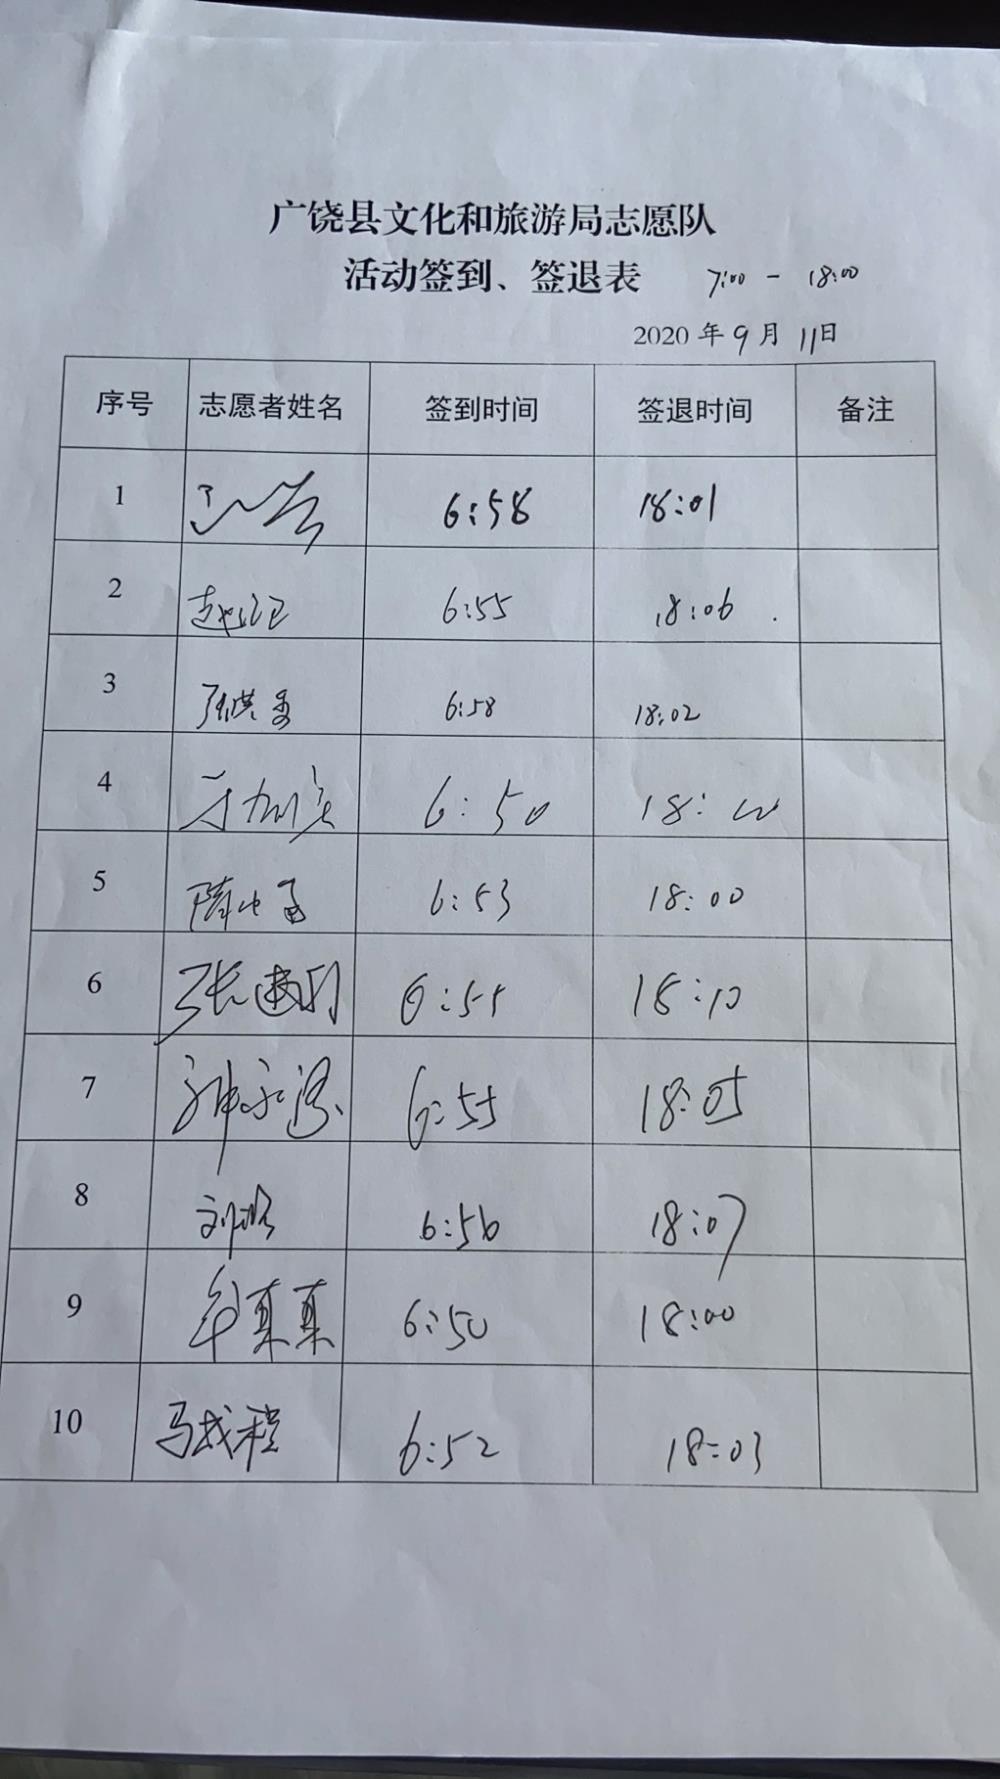 广饶县文化和旅游局志愿队
活动签到、签退表 7:00 - 18:00
2020 年 9 月 11日
序号 志愿者姓名 签到时间 签退时间 备注
1 6:58 18:01
2 6:55 18:06
3 6:58 18:02
4 6:50 18:00
5 6:53 18:00
6 张建明 6:55 18:10
7 6:55 18:05
8 6:56 18:07
9 牟真真 6:50 18:00
10 马成程 6:52 18:03